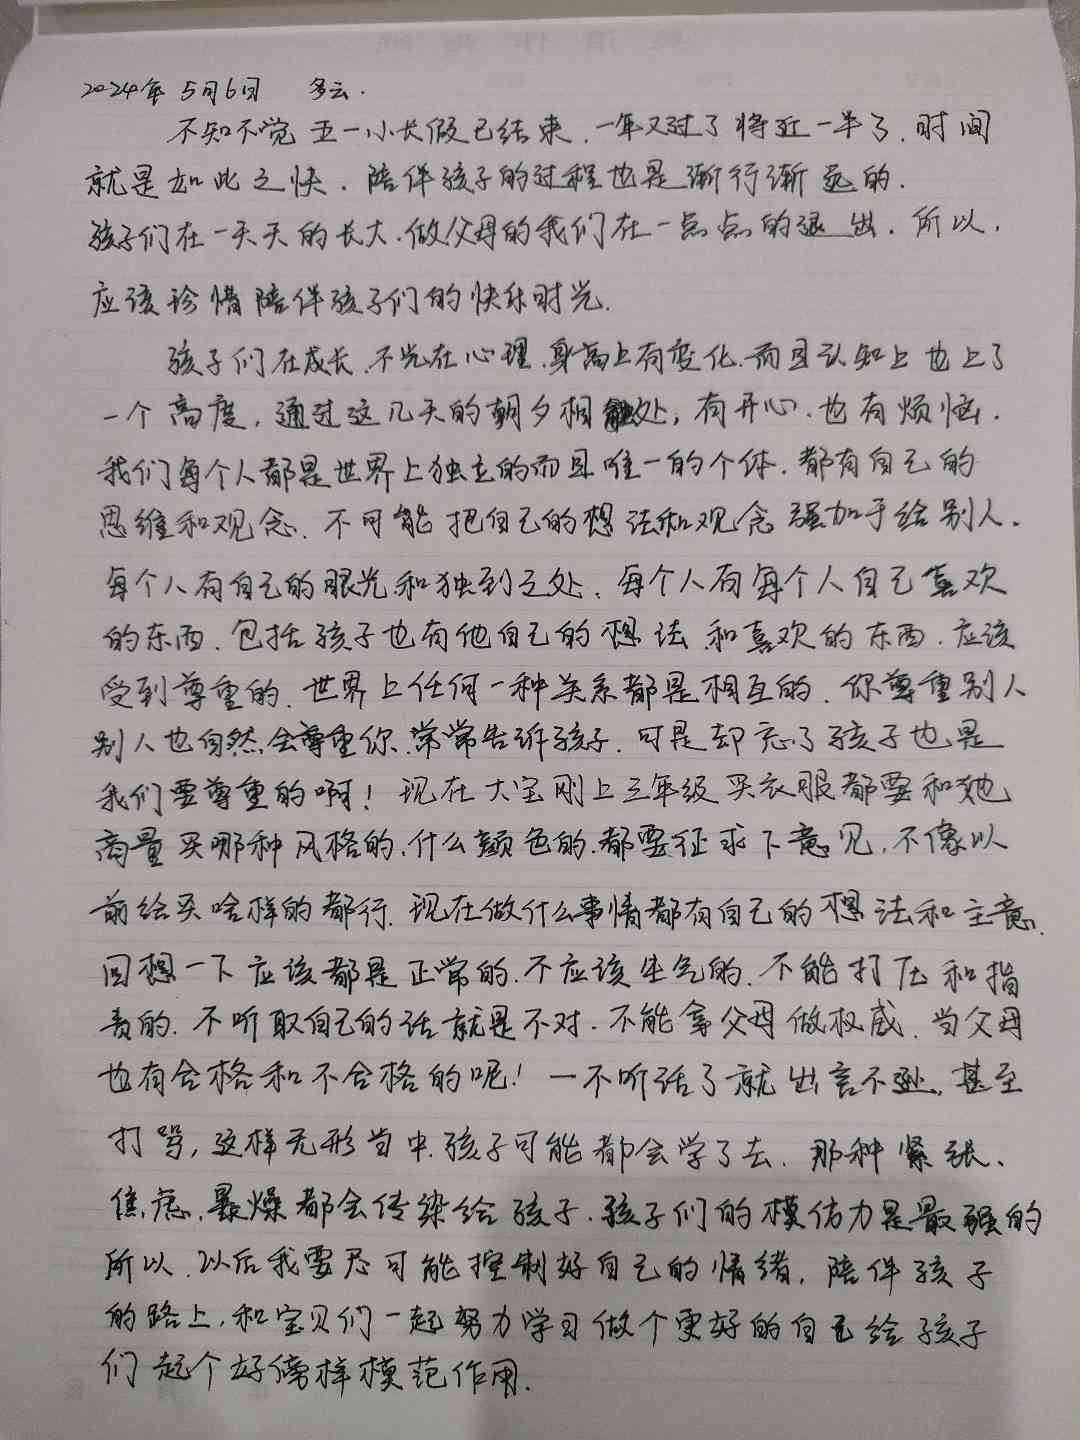 2024年 5月6日 多云.
不知不觉五一小长假已结束.一年又过了将近一半了.时间
就是如此之快.陪伴孩子的过程也是渐行渐远的.
孩子们在一天天的长大.做父母的我们在一点点的退出.所以.
应该珍惜陪伴孩子们的快乐时光.
孩子们在成长.不光在心理.身高上有变化.而且认知上也上了
一个高度,通过这几天的朝夕相处,有开心.也有烦恼.
我们每个人都是世界上独立的而且唯一的个体.都有自己的
思维和观念.不可能把自己的想法和观念强加于给别人.
每个人有自己的眼光和独到之处.每个人有每个人自己喜欢
的东西.包括孩子也有他自己的想法和喜欢的东西.应该
受到尊重的.世界上任何一种关系都是相互的.你尊重别人
别人也自然会尊重你.常常告诉孩子.可是却忘了孩子也是
我们要尊重的啊!现在大宝刚上三年级买衣服都要和她
商量买哪种风格的.什么颜色的.都要征求下意见,不像以
前给买啥样的都行.现在做什么事情都有自己的想法和主意.
回想一下应该都是正常的.不应该生气的.不能打压和指
责的.不听取自己的话就是不对.不能拿父母做权威.当父母
也有合格和不合格的呢!一不听话了就出言不逊.甚至
打骂,这样无形当中.孩子可能都会学了去.那种紧张、
焦虑.暴燥都会传染给孩子.孩子们的模仿力是最强的
所以.以后我要尽可能控制好自己的情绪.陪伴孩子
的路上,和宝贝们一起努力学习做个更好的自己给孩子
们起个好傍样模范作用.